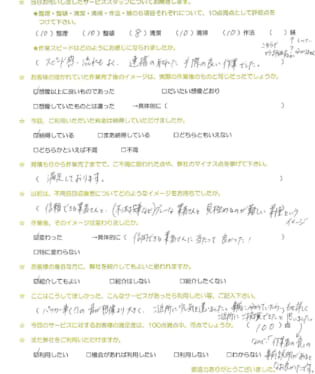 ☆ 当社がお伺いしましたサービススタッフについてお聞きします。
★整理・整頓・清潔・清掃・作法・躾の6項目それぞれについて、10点満点として評価点を
つけて下さい。
(10) 整理 (10) 整頓 (8) 清潔 (10) 清掃 (10) 作法 ( ) 躾
★作業スピードはどのようにお感じになられましたか。
(スピード感・流れるよく 連携の取れた手際の良い作業でした。)
☆ お客様の描かれていた作業完了後のイメージは、実際の作業後のものと同じだったでしょうか。
☑想像以上に良いものであった □だいたい想像どおり
□想像していたものとは違った →具体的に ( )
☆ 今回、ご利用いただいた料金は納得していただけましたか。
☑納得している □まあ納得している □どちらともいえない
□どちらかといえば不満 □不満
☆ 見積もりから作業完了までで、ご不満に思われた点や、弊社のマイナス点を挙げて下さい。
(満足しております。)
☆ 以前は、不用品回収業者についてどのようなイメージをお持ちでしたか。
(信頼できる業者さんと、(不法投棄など)グレーな業者さんと 見極めるのが難しい業種という
イメージ
☆ 作業後、そのイメージは変わりましたか。
☑変わった →具体的に (信用できる業者さんに当たって良かった!)
□特に変わらない
☆ お客様の身近な方に、弊社を紹介してもよいと思われますか。
☑紹介してもよい □紹介はしない □紹介したくない
☆ ここはこうしてほしかった、こんなサービスがあったら利用したい等、ご記入下さい。
☆ 今回のサービスに対するお客様の満足度は、100点満点中、何点でしょうか。 (100)点
☆ また弊社をご利用いただけますか。
☑利用したい □機会があれば利用したい □利用しない □わからない
御協力ありがとうございました。